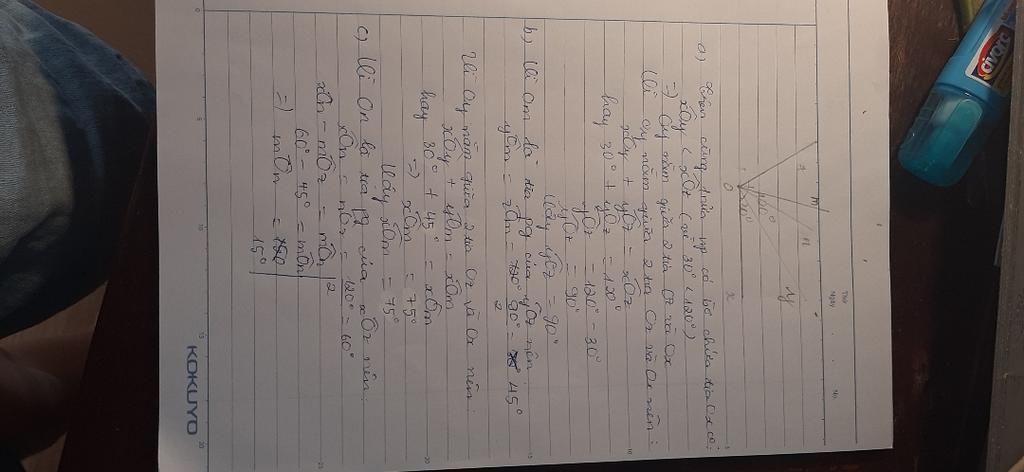 Thứ
Ngày
No.
z
m
n
y
x
O
30°
120°
a) Trên cùng nửa mp có bờ chứa tia Ox có:
xOy < xOz (vì 30° < 120°)
=) Oy nằm giữa 2 tia Oz và Ox
Vì Oy nằm giữa 2 tia Oz và Ox nên:
xOy + yOz = xOz
hay 30° + yOz = 120°
yOz = 120° - 30°
yOz = 90°
Vậy yOz = 90°
b) Vì Om là tia pg của yOz nên:
yOm = zOm = 90° = 45°
2
Vì Oy nằm giữa 2 tia Oz và Ox nên:
xOy + yOm = xOm
hay 30° + 45° = xOm
=) xOm = 75°
Vậy xOm = 75°
c) Vì On là tia pg của xOz nên:
xOn = nOz = 120° = 60°
2
xOn - mOz = mOn
60° - 45° = mOn
=) mOn =
15°
KOKUYO
0
5
10
15
20
5
10
15
20
25